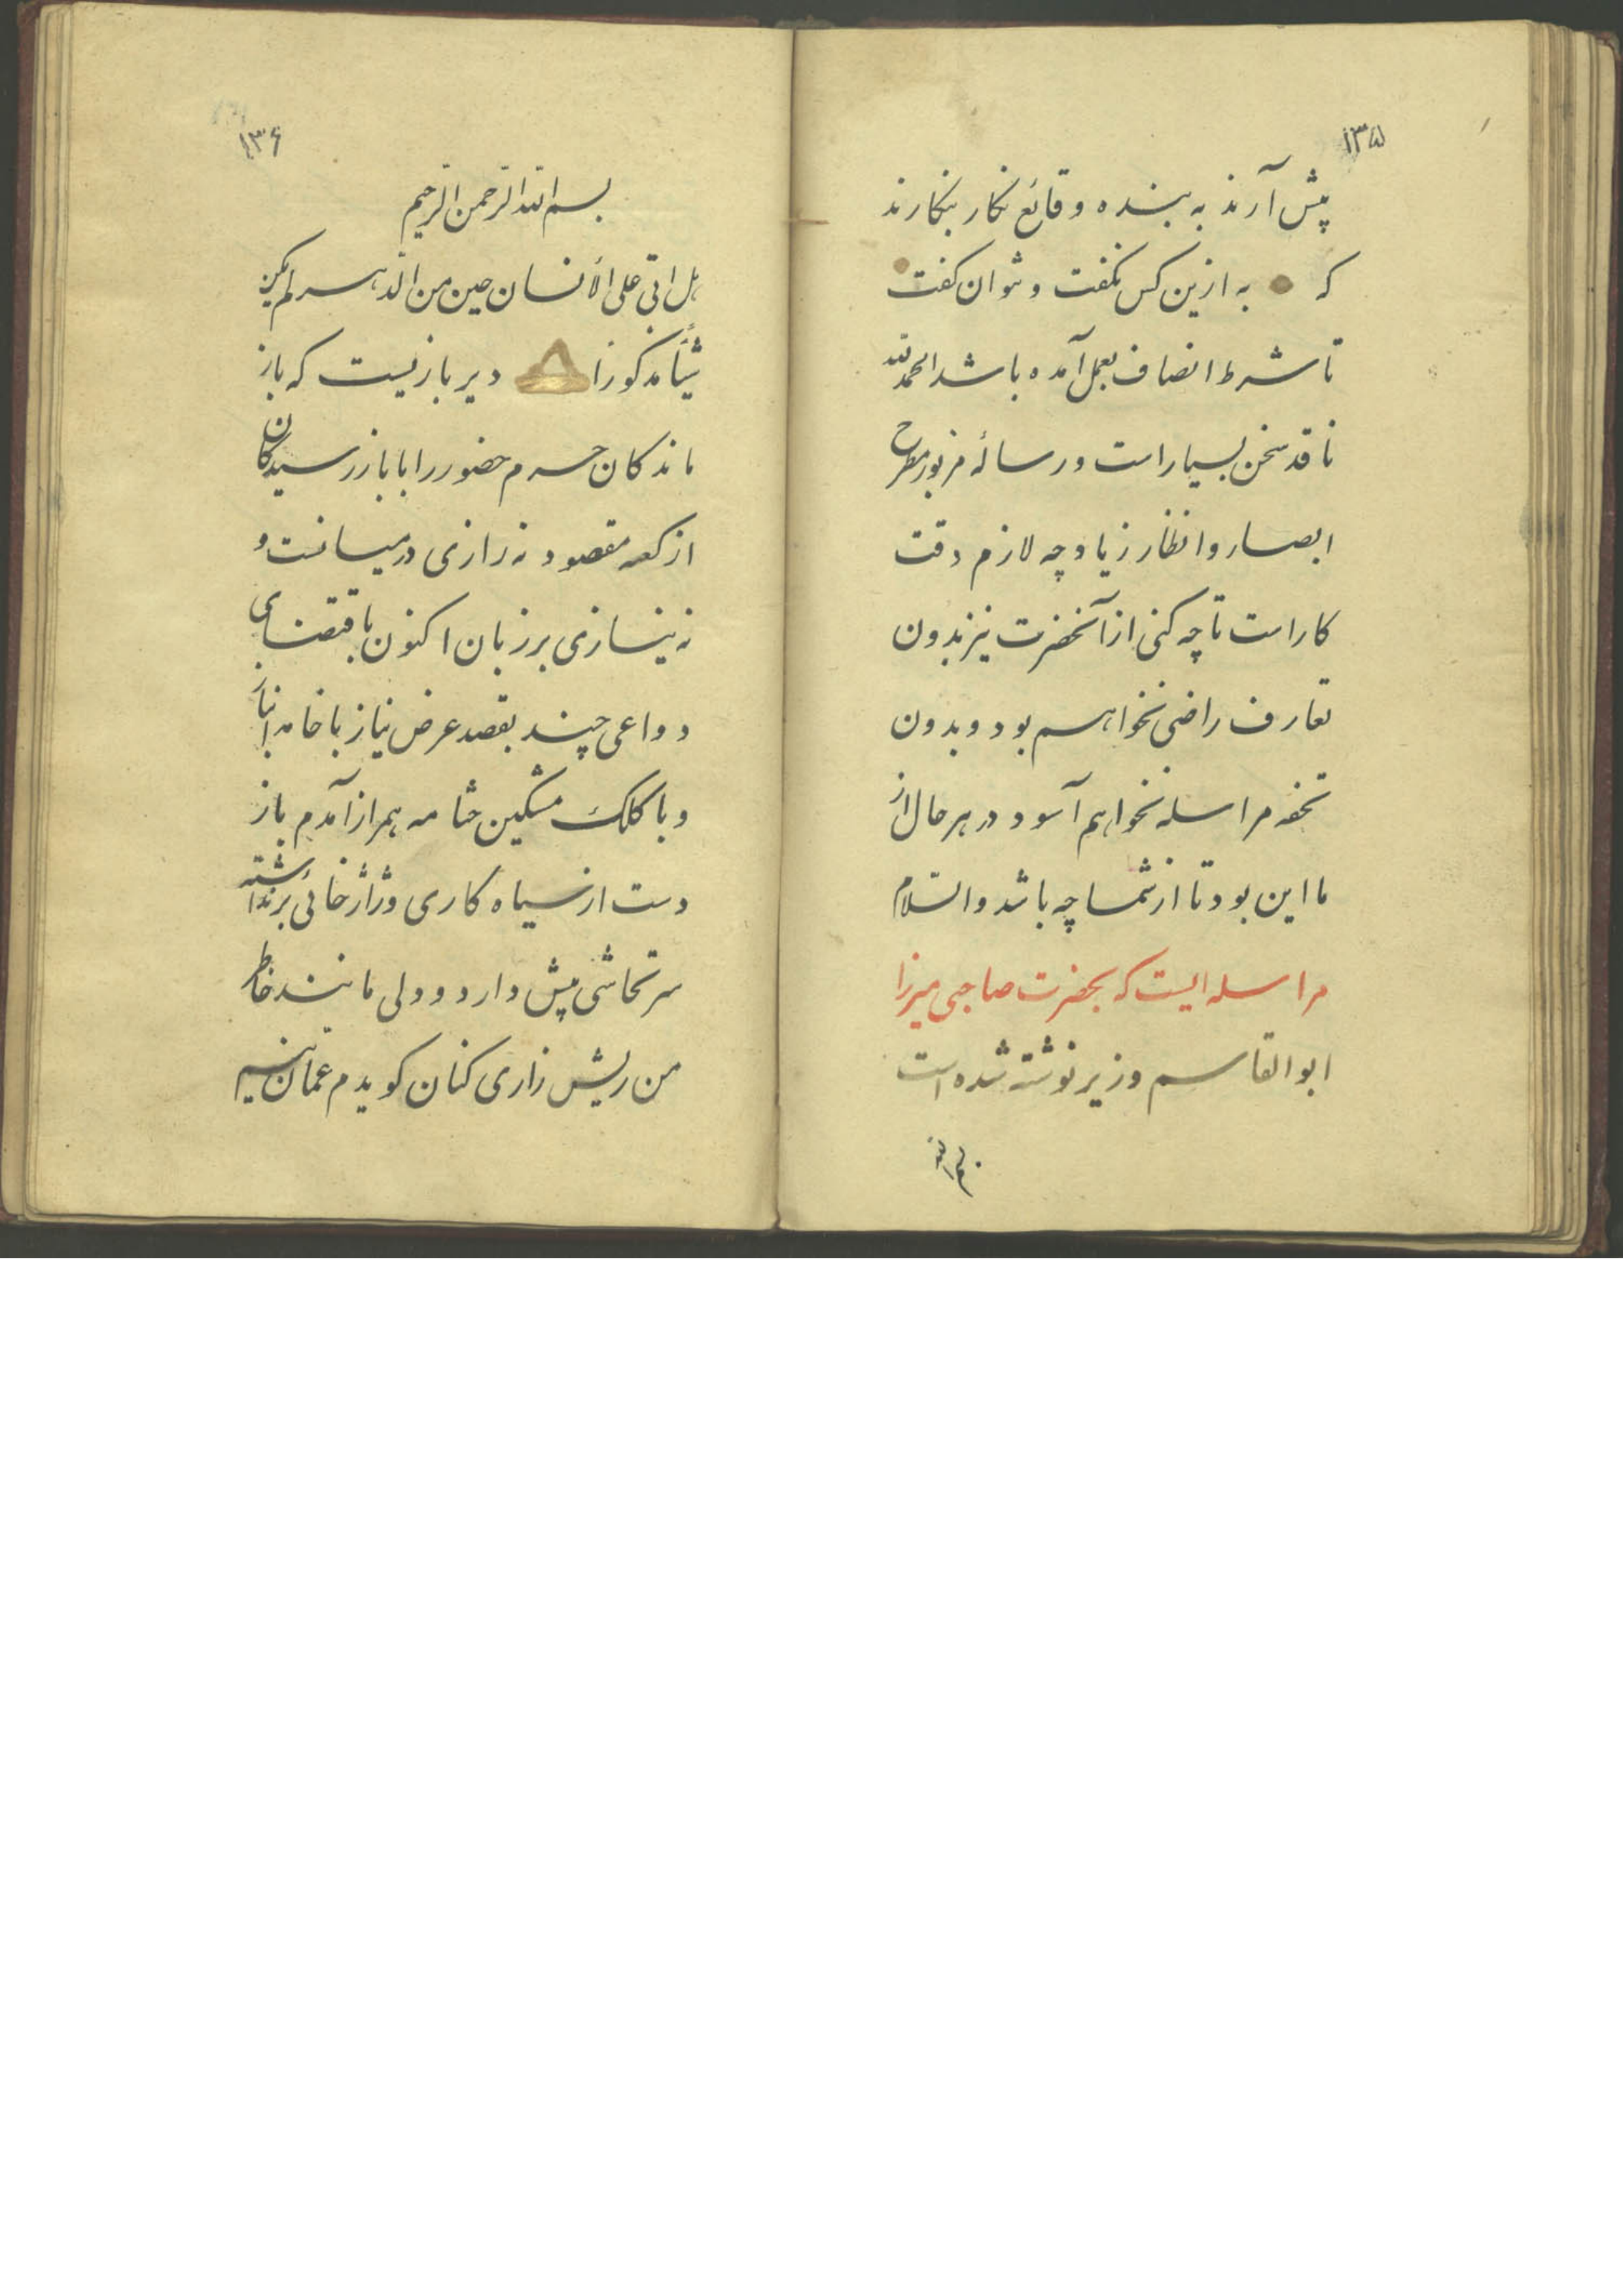 ۱۳۵
پیش آرند به بنده وقائع نکار بنکارند
که به ازین کس نکفت و نتوان کفت
تا شرط انصاف بعمل آمده باشد الحمد لله
ناقد سخن بسیار است و رسالهٔ مزبور مطرح
ابصار و انظار زیاد چه لازم دقت
کار است تا چه کنی از آنحضرت نیز بدون
تعارف راضی نخواهم بود و بدون
تحفه مراسله نخواهم آسود در هر حال از
ما این بود تا از شما چه باشد والسّلام
مراسله ایست که بحضرت صاحبی میرزا
ابوالقاسم وزیر نوشته شده است
بسم الله
۱۳۶
بسم الله الرّحمن الرّحیم
هل اتی علی الأنسان حین من الدّهر لم یکن
شیٔاً مذکورا دیر بازیست که باز
ماندکان حرم حضور را با باز رسیدکان
از کعبه مقصود نه رازی در میانست و
نه نیازی بر زبان اکنون باقتضای
دواعی چند بقصد عرض نیاز با خامه انباز
و با کلک مشکین ختامه همراز آمدم باز
دست از سیاه کاری و ژاژخائی برنداشته
سر تحاشی پیش دارد و ولی مانند خاطر
من ریش زاری کنان کویدم